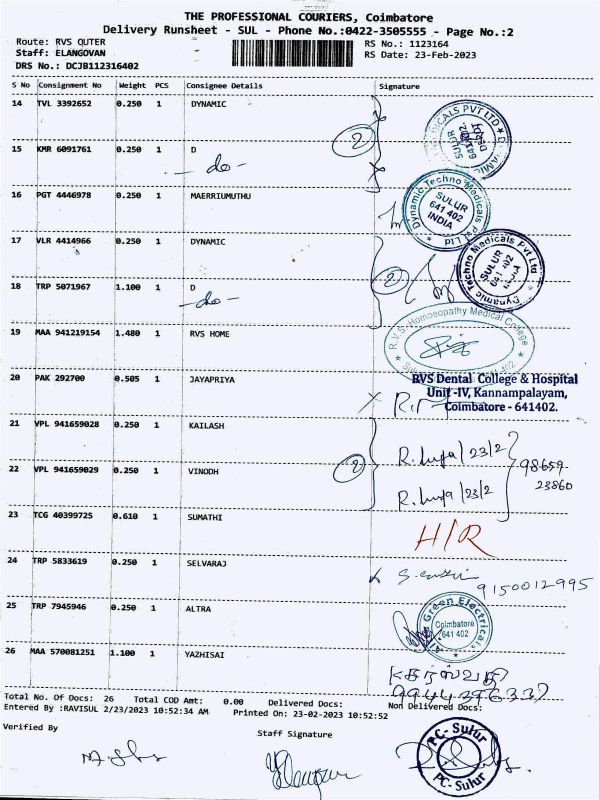 THE PROFESSIONAL COURIERS, Coimbatore
Delivery Runsheet - SUL - Phone No.:0422-3505555 - Page No.:2
Route: RVS OUTER RS No.: 1123164
Staff: ELANGOVAN RS Date: 23-Feb-2023
DRS No.: DCJB112316402
S No Consignment No Weight PCS Consignee Details Signature
14 TVL 3392652 0.250 1 DYNAMIC
15 KMR 6091761 0.250 1 D
- do -
2
16 PGT 4446978 0.250 1 MAERRIUMUTHU
Dynamic Techno Medicals Pvt Ltd
SULUR
641 402
INDIA
17 VLR 4414966 0.250 1 DYNAMIC
Dynamic Techno Medicals Pvt Ltd
SULUR
641 402
INDIA
18 TRP 5071967 1.100 1 D
- do -
2
19 MAA 941219154 1.480 1 RVS HOME
R.V.S. Homoeopathy Medical College
20 PAK 292700 0.505 1 JAYAPRIYA
RVS Dental College & Hospital
Unit -IV, Kannampalayam,
Coimbatore - 641402.
21 VPL 941659028 0.250 1 KAILASH
23/2
22 VPL 941659029 0.250 1 VINODH
23/2
2
98659
23860
23 TCG 40399725 0.610 1 SUMATHI
H/R
24 TRP 5833619 0.250 1 SELVARAJ
9150012995
25 TRP 7945946 0.250 1 ALTRA
Green Electricals
Coimbatore
641 402
26 MAA 570081251 1.100 1 YAZHISAI
9944376337
Total No. Of Docs: 26 Total COD Amt: 0.00 Delivered Docs: Non Delivered Docs:
Entered By :RAVISUL 2/23/2023 10:52:34 AM Printed On: 23-02-2023 10:52:52
Verified By Staff Signature
PC- Sulur
PC- Sulur